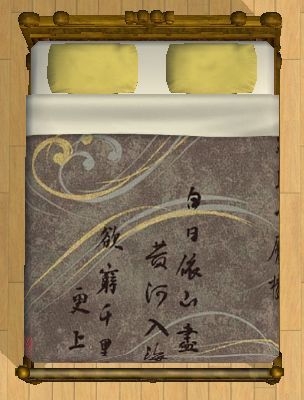 白日依山盡
黄河入海
欲窮千里
更上